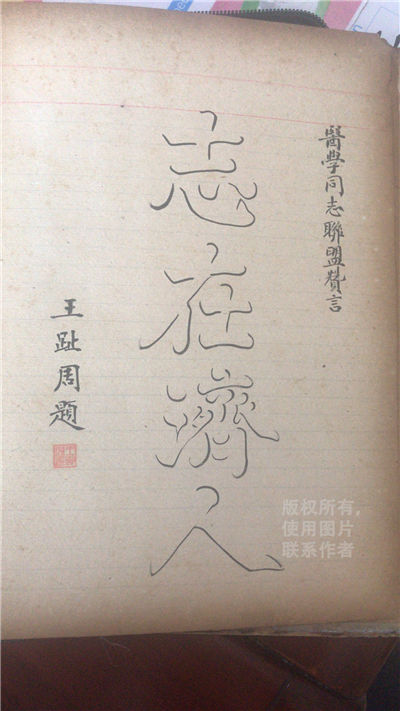 醫學同志聯盟贊言
志在濟人
王趾周題
版权所有，
使用图片
联系作者